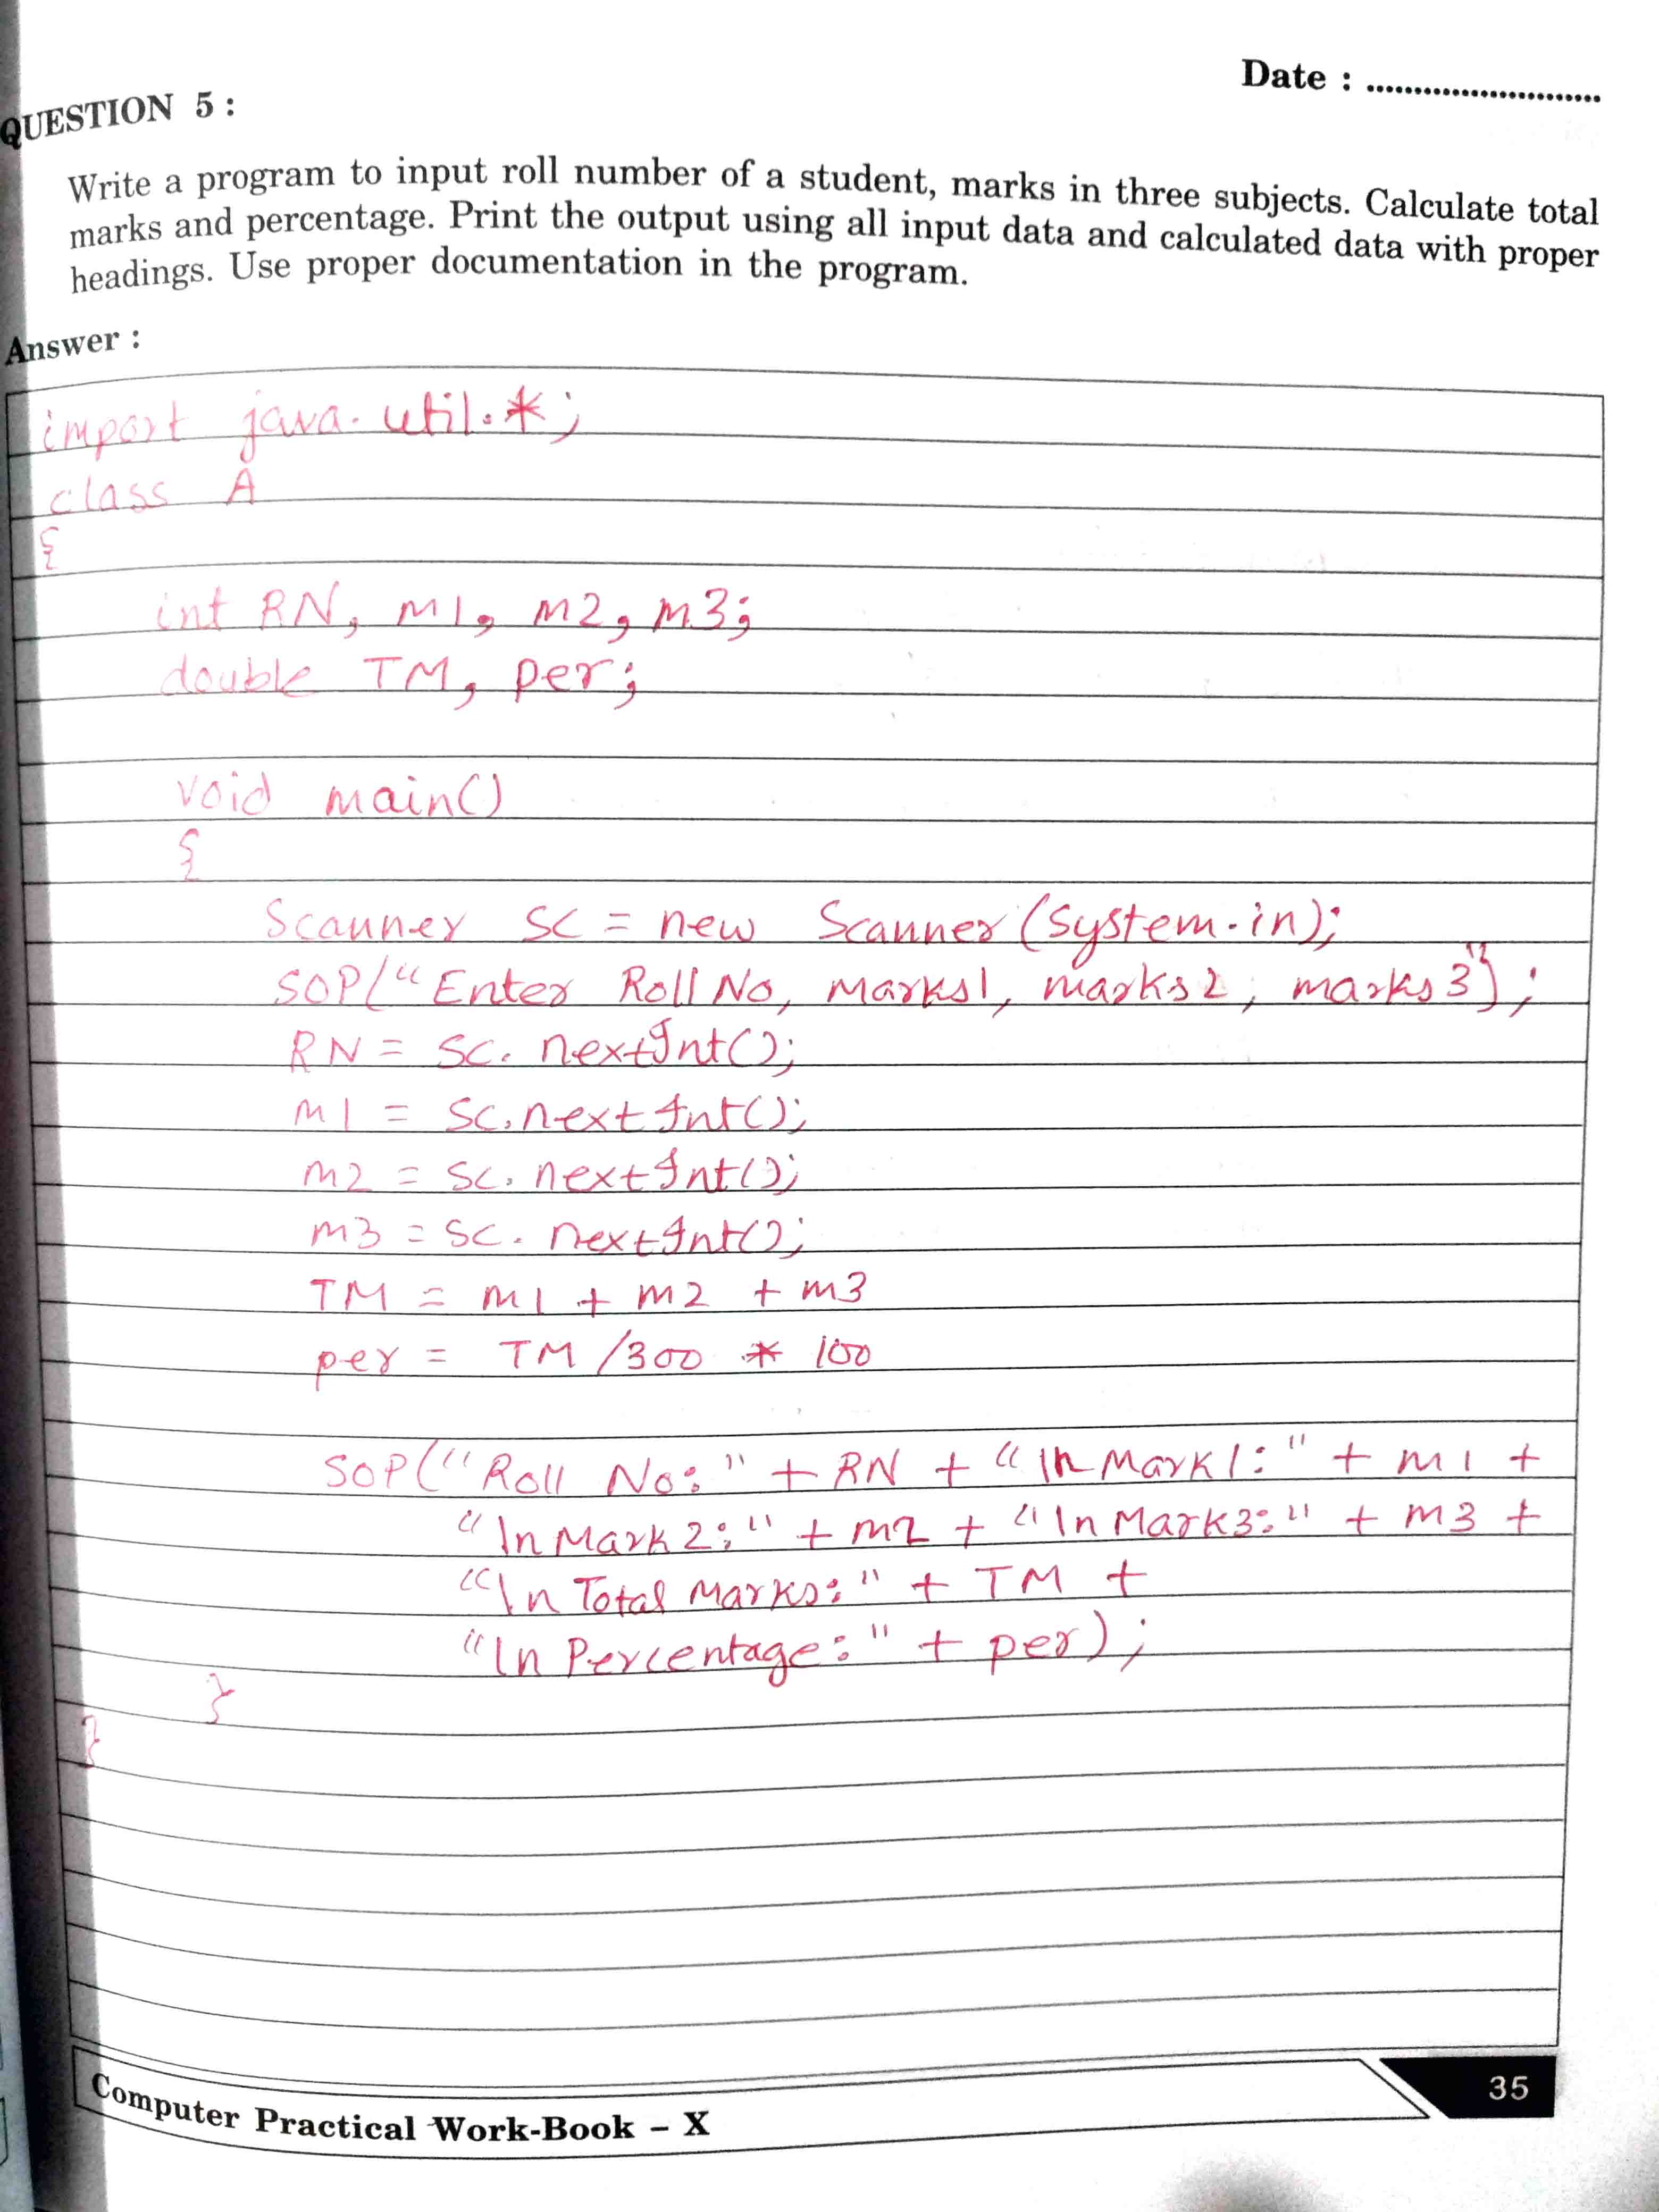 Date : ..........................
QUESTION 5 :
Write a program to input roll number of a student, marks in three subjects. Calculate total
marks and percentage. Print the output using all input data and calculated data with proper
headings. Use proper documentation in the program.
Answer :
import java.util.*;
class A
{
int RN, m1, m2, m3;
double TM, per;
void main()
{
Scanner SC = new Scanner (System.in);
SOP("Enter Roll No, marks1, marks2, marks3");
RN = SC. nextInt();
m1 = SC.nextInt();
m2 = SC. nextInt();
m3 = SC. nextInt();
TM = m1 + m2 + m3
per = TM /300 * 100
SOP("Roll No:" + RN + "\n Mark1:" + m1 +
"\n Mark2:" + m2 + "\n Mark3:" + m3 +
"\n Total Marks:" + TM +
"\n Percentage:" + per);
}
}
Computer Practical Work-Book – X
35